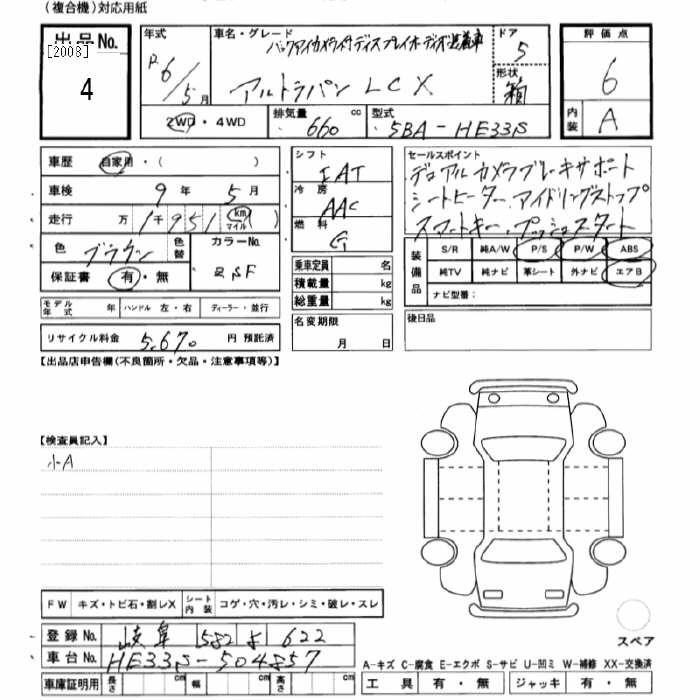 (複合機)対応用紙
出品No.
[2008]
4
年式
R6/5月
車名・グレード
バックアイカメラ付ディスプレイオーディオ装着車
アルトラパン LCX
ドア
5
形状
箱
評価点
6
内装
A
2WD・4WD
排気量
660 cc
型式
5BA-HE33S
車歴 自家用・( )
車検 9年 5月
走行 万 1千951 km マイル
色 ブラウン 色替
カラーNo.
保証書 有・無
モデル年式 年 ハンドル 左・右 ディーラー・並行
リサイクル料金 5,670 円 預託済
シフト
IAT
冷房
AAC
燃料
G
乗車定員 名
積載量 kg
総重量 kg
名変期限
月 日
セールスポイント
デュアルカメラブレーキサポート
シートヒーター、アイドリングストップ
スマートキー、プッシュスタート
装備品
S/R 純A/W P/S P/W ABS
純TV 純ナビ 革シート 外ナビ エアB
ナビ型番:
後日品
【出品店申告欄(不良箇所・欠品・注意事項等)】
【検査員記入】
小A
FW キズ・トビ石・割レX シート内装 コゲ・穴・汚レ・シミ・破レ・スレ
登録No. 岐阜 582 す 622
車台No. HE33S-504857
車庫証明用 長さ cm 幅 cm 高さ cm
スペア
A-キズ C-腐食 E-エクボ S-サビ U-凹ミ W-補修 XX-交換済
工具 有・無 ジャッキ 有・無